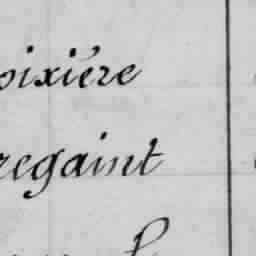 oixiére
regaint